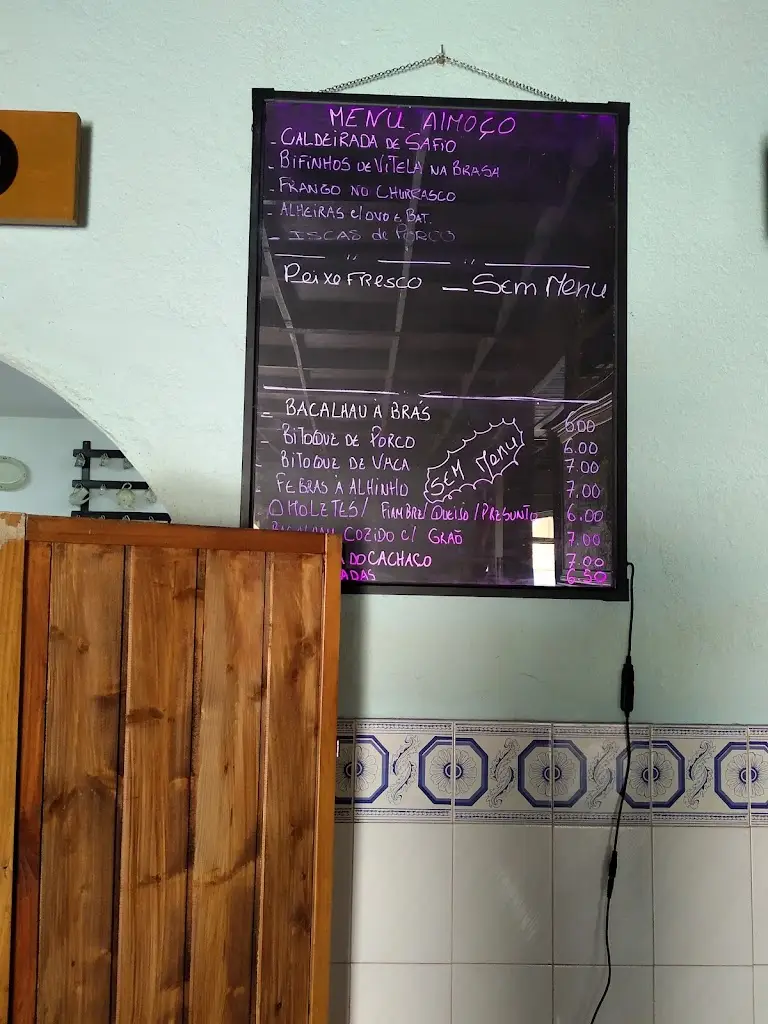 MENU AlMOÇO
- CALDEIRADA DE SAFIO
- BIFINHOS DE VITELA NA BRASA
- FRANGO NO CHURRASCO
- ALHEIRAS C/OVO E BAT.
- ISCAS de PORCO
Peixe FRESCO — Sem Menu
- BACALHAU À BRÁS 6.00
- BITOQUE DE PORCO 6.00
- BITOQUE DE VACA 7.00
SEM Menu
- FEBRAS À ALHINHO 7.00
OMOLETES/ FIAMBRE/ QUEIJO/PRESUNTO 6.00
BACALHAU COZIDO C/ GRÃO 7.00
DO CACHAÇO 7.00
ADAS 6.50